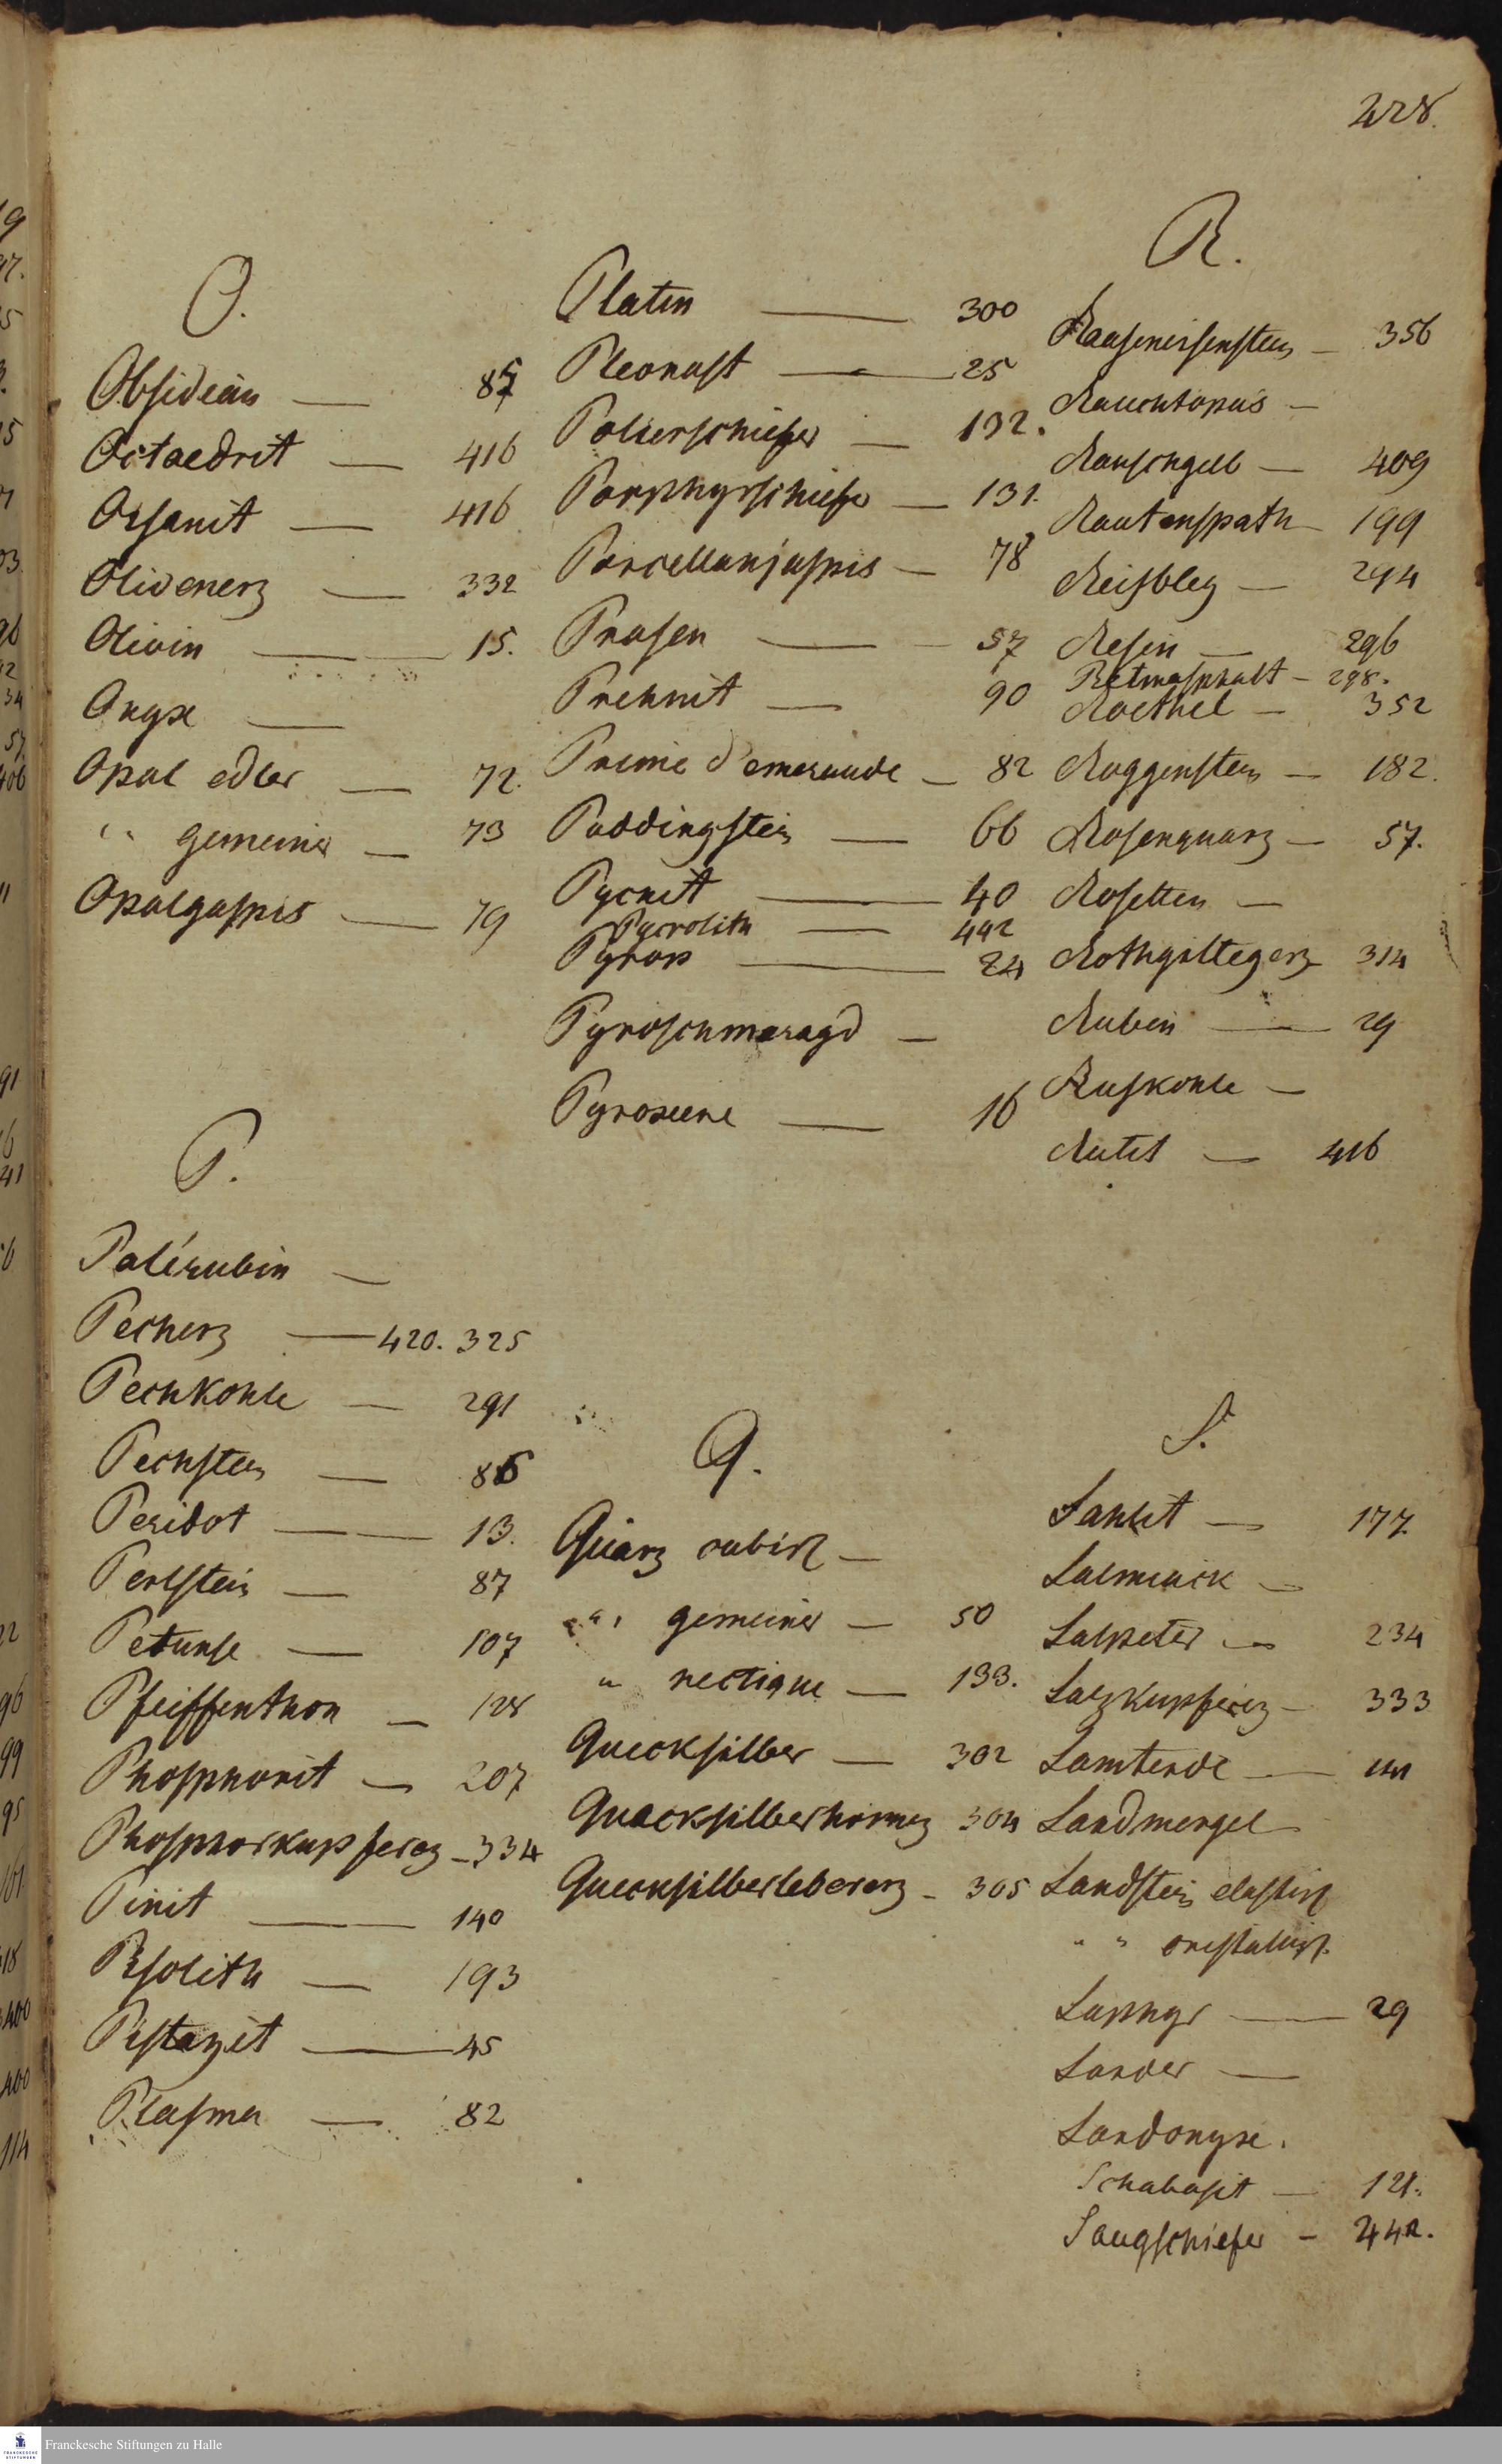 428.
O.
Obsidian — 85
Octaedrit — 416
Oisanit — 416
Olivenerz — 332
Olivin — 15.
Onyx —
Opal edler — 72.
" gemeiner — 73
Opalgaspis — 79
P.
Palérubin —
Pecherz — 420. 325
Pechkohle — 291
Pechstein — 86
Peridot — 13.
Perlstein — 87
Petunse — 107
Pfeiffenthon — 128
Phosphorit — 207
Phosphorkupfererz — 334
Pinit — 140
Pisolith — 193
Pistazit — 45
Plasma — 82
Platin — 300
Pleonast — 25
Polierschiefer — 132.
Porphyrschiefer — 131.
Porcellanjaspis — 78
Prasen — 57
Prehnit — 90
Prime d'emeraude — 82
Puddingstein — 66
Pycnit — 40
Pyrrolith — 442
Pyrop — 24
Pyroschmaragd —
Pyroxene — 16
Q.
Quarz cubisch —
" gemeiner — 50
" nectique — 133.
Quecksilber — 302
Quecksilberhornerz 304
Quecksilberlebererz — 305
R.
Raaseneisenstein — 356
Rauchtopas —
Rauschgelb — 409
Rautenspath — 199
Reisbley — 294
Resin — 296
Retinasphalt — 298.
Roethel — 352
Roggenstein — 182.
Rosenquarz — 57.
Rosetten —
Rothgiltegerz 314
Rubin — 29
Ruskohle —
Rutil — 416
S.
Sahlit — 177.
Salmiack —
Salpeter — 234
Salzkupfererz — 333
Samterde —
Sandmergel —
Sandstein elastisch
" " cristallisch.
Saphyr — 29
Sarder —
Sardonyx.
Schabasit — 121.
Saugschiefer — 442.
Franckesche Stiftungen zu Halle